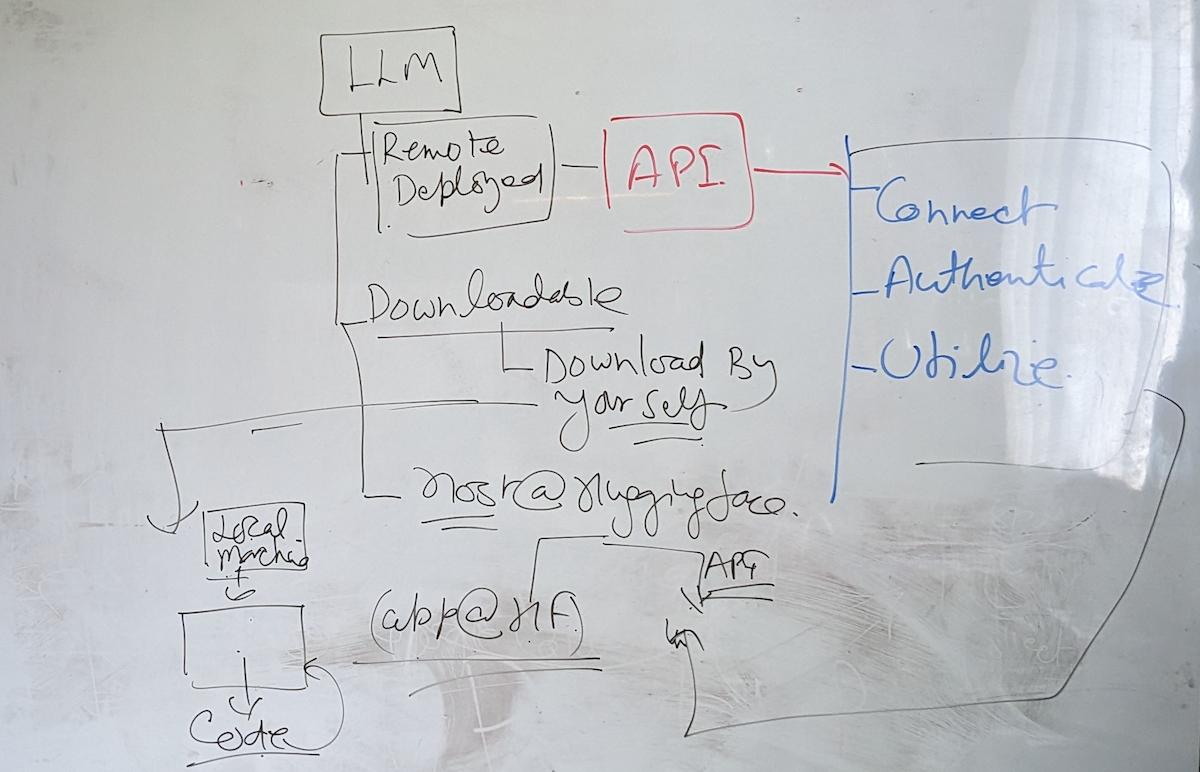 LLM
Remote
Deployed
API
Connect
Authenticate
Utilize
Downloadable
Download By
Yourself
Host@Huggingface.
Local
Machine
API
(app@HF)
Code